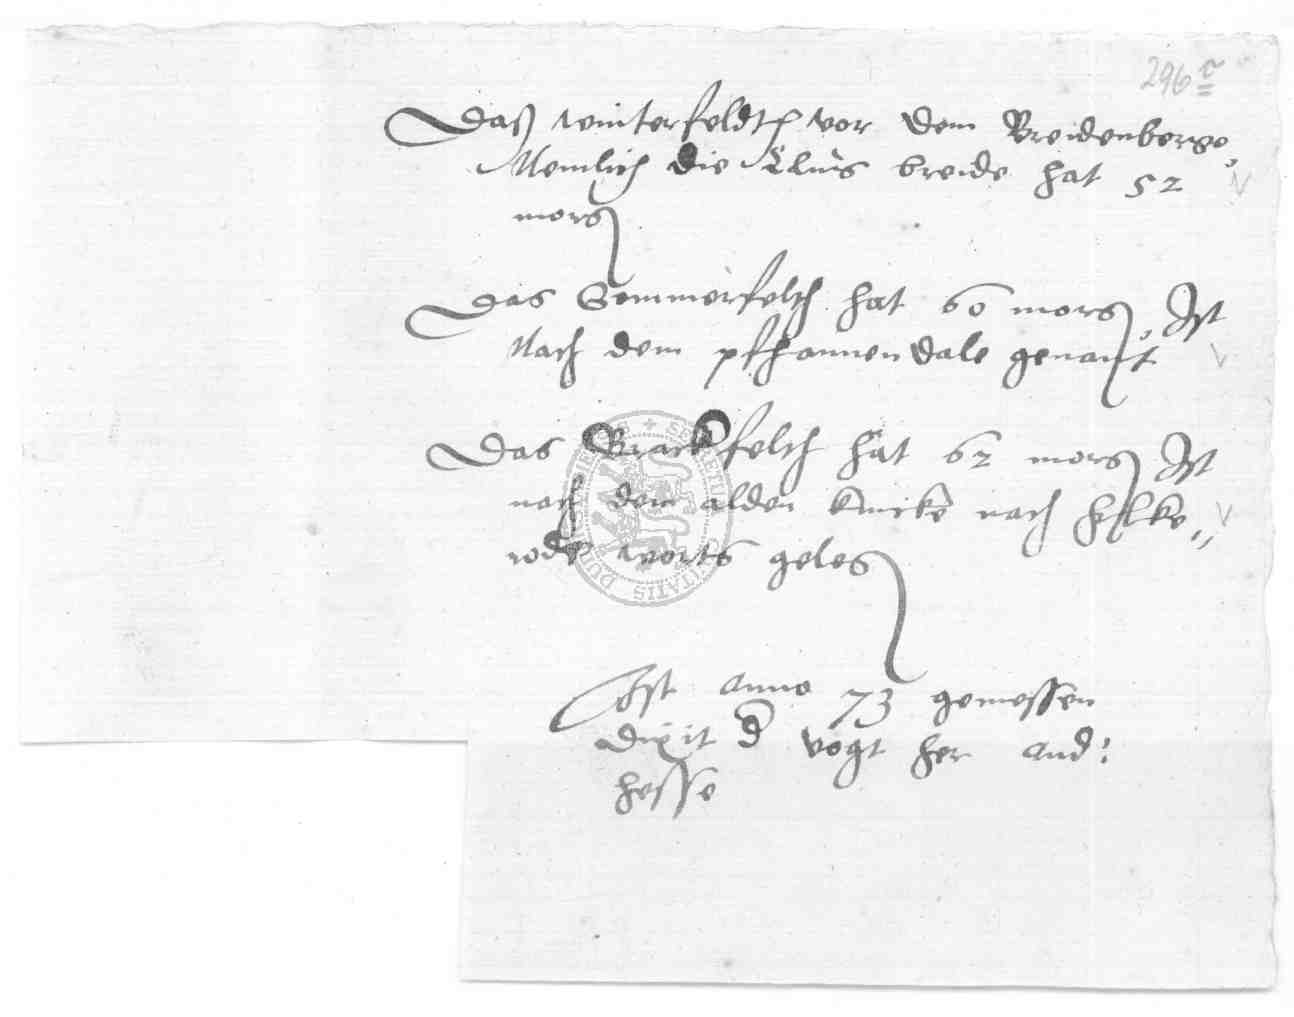 296 r
Daß winterfeldth vor dem Breidenberge,
Nemlich die Clus breide hat 52
morg
Das Sommerfelth hat 60 morg, Ist
Nach dem pfhannendale genant
Das Brackfelth hat 62 morg Ist
nach dem alden knicke nach Hilke„
rode worts geleg
Ist Anno 73 gemessen
dixit d vogt her And:
Hesse